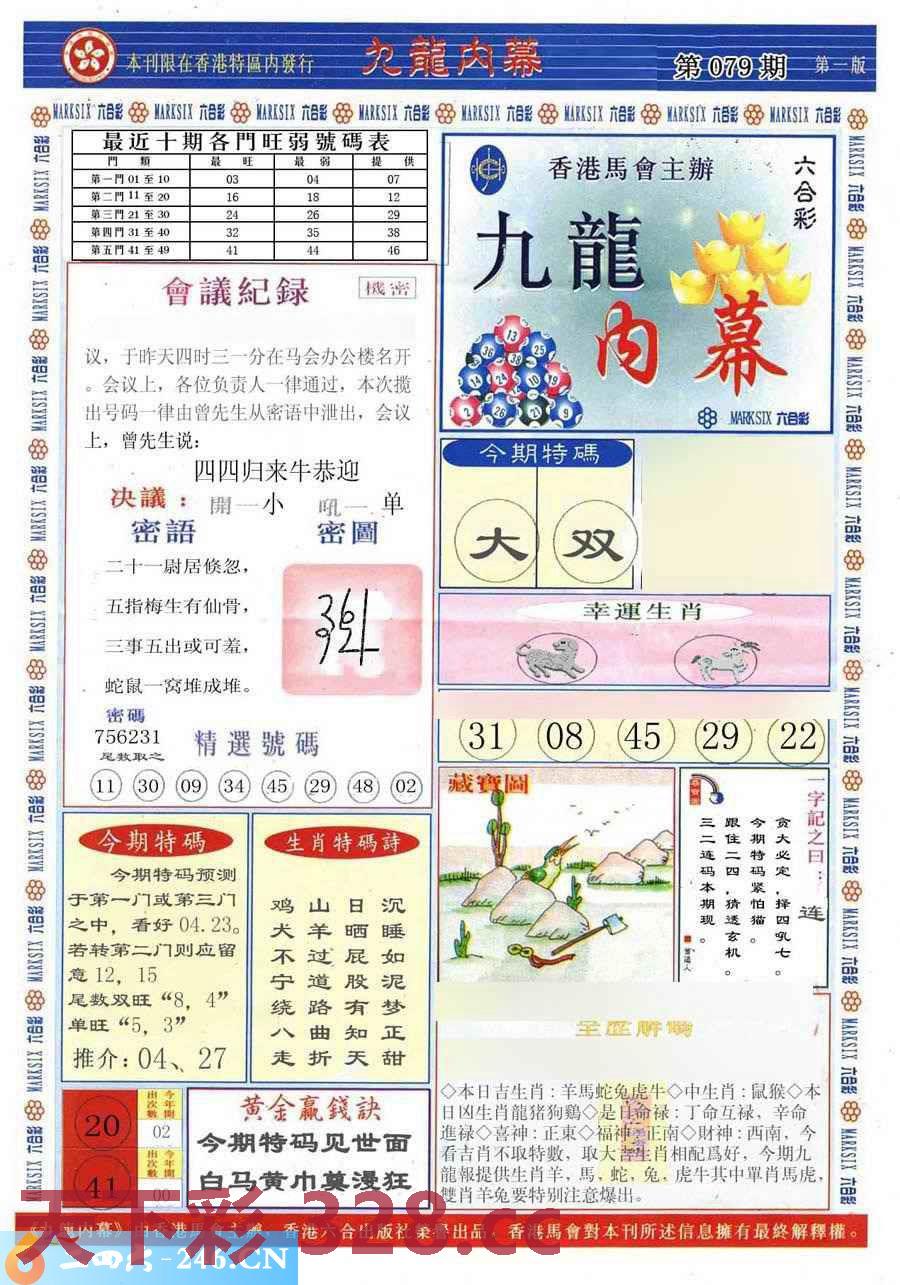 本刊限在香港特區内發行
九龍内幕
第 079 期
第一版
MARKSIX 六合彩
最近十期各門旺弱號碼表
門 類 最 旺 最 弱 提 供
第一門 01 至 10 03 04 07
第二門 11 至 20 16 18 12
第三門 21 至 30 24 26 29
第四門 31 至 40 32 35 38
第五門 41 至 49 41 44 46
會議紀録
機密
议，于昨天四时三一分在马会办公楼名开
。会议上，各位负责人一律通过，本次搅
出号码一律由曾先生从密语中泄出，会议
上，曾先生说：
四四归来牛恭迎
决議： 開一小 吼一 单
密語 密圖
二十一尉居倏忽，
五指梅生有仙骨，
三事五出或可羞，
蛇鼠一窝堆成堆。
密碼
756231
尾数取之
精選號碼
11 30 09 34 45 29 48 02
香港馬會主辦
六合彩
九龍
内幕
13
36 38 25
14 24 10 19
2 26 27 9
MARKSIX 六合彩
今期特碼
大 双
幸運生肖
31 08 45 29 22
藏寶圖
一字記之曰：
连
贪大必定，择四吼七。
今期特码紧怕猫。
跟住二四，猜透玄机。
三二连码本期现。
曾道人
今期特碼
今期特码预测
于第一门或第三门
之中，看好 04.23。
若转第二门则应留
意 12，15
尾数双旺“8，4”
单旺“5，3”
推介：04、27
生肖特碼詩
鸡 山 日 沉
犬 羊 晒 睡
不 过 屁 如
宁 道 股 泥
绕 路 有 梦
八 曲 知 正
走 折 天 甜
◇本日吉生肖：羊馬蛇兔虎牛◇中生肖：鼠猴◇本
日凶生肖龍猪狗鷄◇是日命禄：丁命互禄，辛命
進禄◇喜神：正東◇福神：正南◇財神：西南，今
看吉肖不取特數，取大吉生肖相配爲好，今期九
龍報提供生肖羊，馬，蛇，兔，虎牛其中單肖馬虎，
雙肖羊兔要特别注意爆出。
20
今年開出次數
02
41
今年開出次數
00
黄金贏錢訣
今期特码见世面
白马黄巾莫漫狂
《九龍内幕》由香港馬會主辦，香港六合出版社榮譽出品，香港馬會對本刊所述信息擁有最終解釋權。
天下彩 328.cc
246.CN